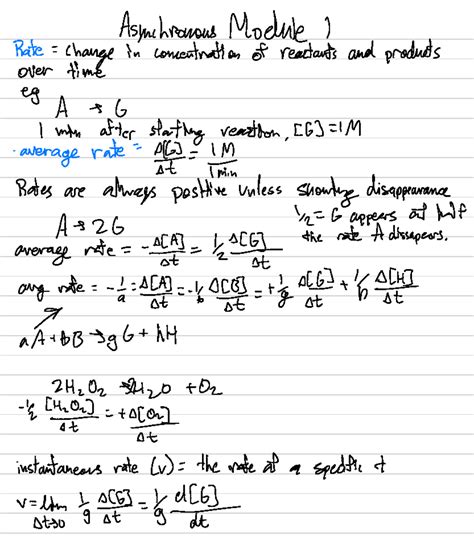 Asynchronous Module 1
Rate = change in concentration of reactants and products
over time
eg
A → G
1 min after starting reaction, [G]=1M
· average rate = Δ[G]/Δt = 1M/1min
Rates are always positive unless showing disappearance
A → 2G
1/2 = G appears at half
the rate A dissapears.
average rate = -Δ[A]/Δt = 1/2 Δ[G]/Δt
avg rate = -1/a · Δ[A]/Δt = -1/b Δ[B]/Δt = +1/g Δ[G]/Δt + 1/h Δ[H]/Δt
aA + bB → gG + hH
2H₂O₂ → 2H₂O + O₂
-1/2 [H₂O₂]/Δt = +Δ[O₂]/Δt
instantaneous rate (v) = the rate at a specific t
v = lim Δt→0 1/g Δ[G]/Δt = 1/g d[G]/dt